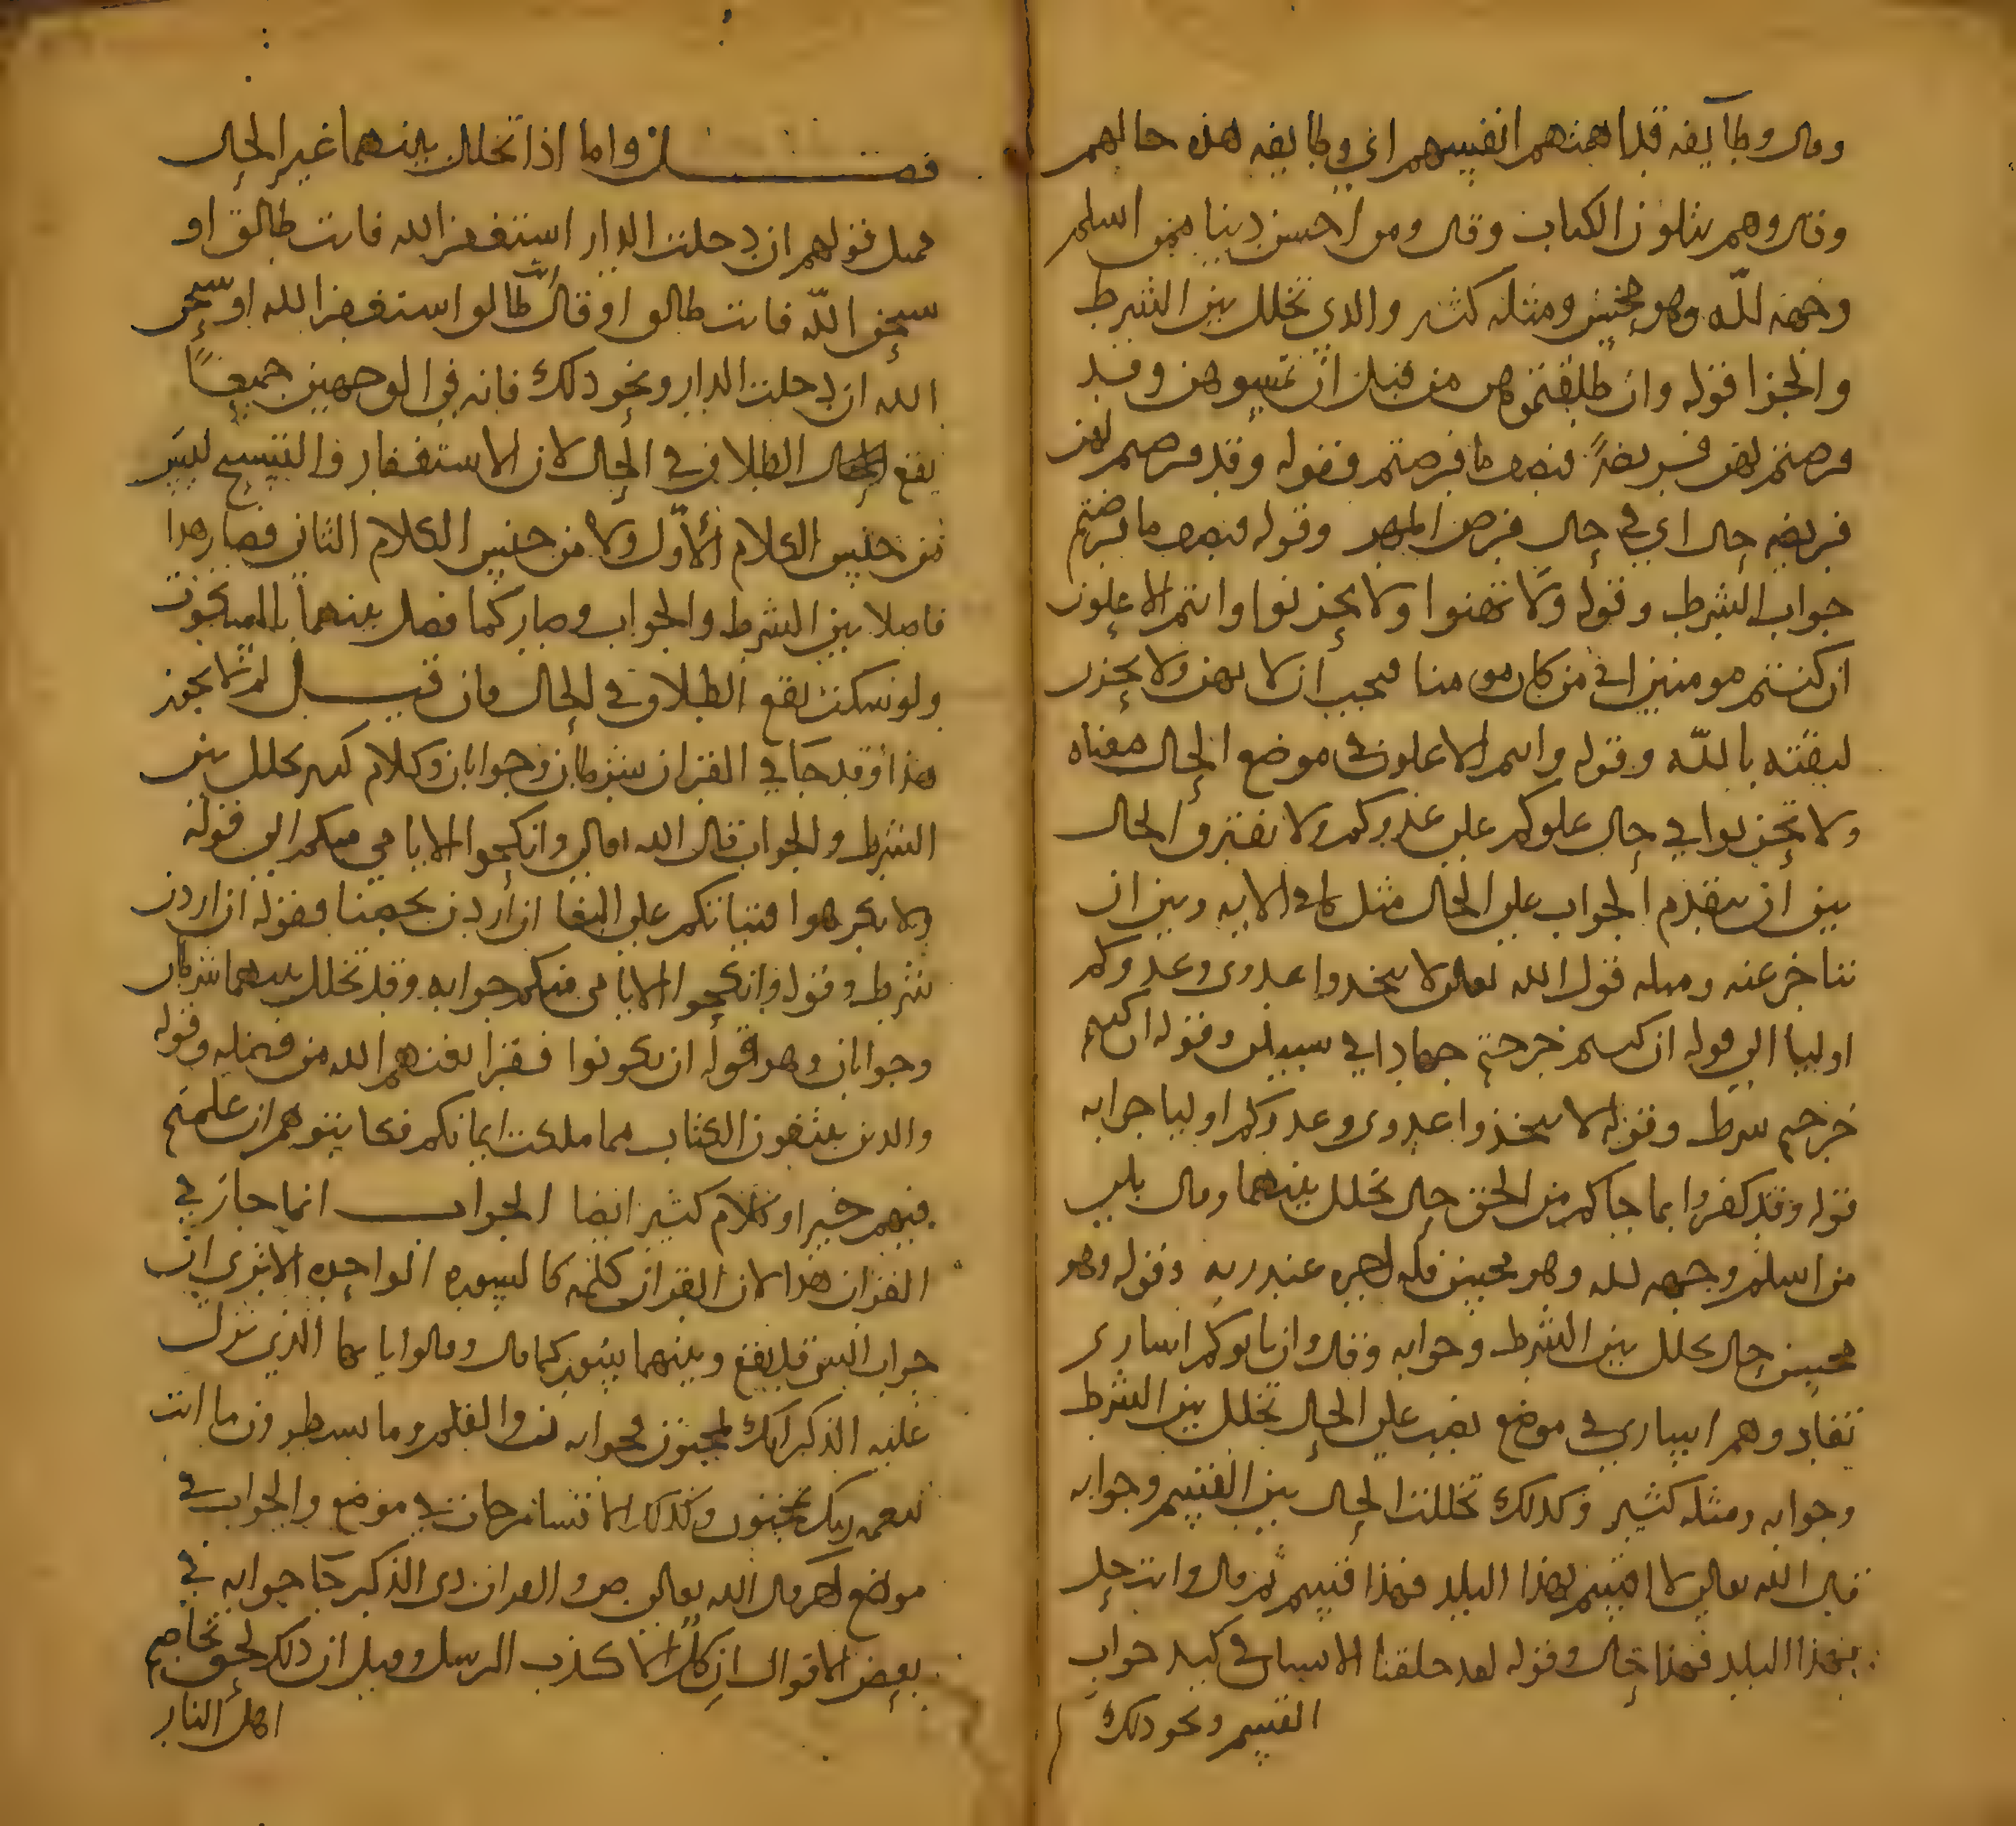 وقال وطايفه قد اهمتهم انفسهم اي وطايفه هذه حالهم
وقال وهم يتلون الكتاب وقال ومن احسن دينا ممن اسلم
وجهه لله وهو محسن ومثله كثير والذي تخلل بين الشرط
والجزا قوله وان طلقتموهن من قبل ان تمسوهن وقد
فرضتم لهن فريضةً فنصف ما فرضتم فقوله وقد فرضتم لهن
فريضه حال اي في حال فرض المهر وقوله فنصف ما فرضتم
جواب الشرط وقوله ولا تهنوا ولا تحزنوا وانتم الاعلون
ان كنتم مومنين اي من كان مومنا فيجب ان لا يهن ولا يحزن
لثقته بالله وقوله وانتم الاعلون في موضع الحال معناه
ولا تحزنوا في حال علوكم علي عدوكم ولا يفترق الحال
بين ان يتقدم الجواب علي الحال مثل ما في الايه وبين ان
يتاخر عنه ومثله قول الله تعالي لا تتخذوا عدوي وعدوكم
اوليا الي قوله ان كنتم خرجتم جهادا في سبيلي وقوله ان كنتم
خرجتم شرط وقوله لا تتخذوا عدوي وعدوكم اوليا جوابه
قوله وقد كفروا بما جاكم من الحق حال تخلل بينهما وقال بلي
من اسلم وجهه لله وهو محسن فله اجره عند ربه وقوله وهو
محسن حال تخلل بين الشرط وجوابه وقال وان ياتوكم اساري
تفادوهم اساري في موضع نصب علي الحال تخلل بين الشرط
وجوابه ومثله كثير وكذلك تخللت الحال بين القسم وجوابه
قال الله تعالي لا اقسم بهذا البلد فهذا قسم ثم قال وانت حل
بهذا البلد فهذا حال وقوله لقد خلقنا الانسان في كبد جواب
القسم ونحو ذلك
فصل واما اذا تخلل بينهما غير الحال
مثل قولهم ان دخلت الدار استغفر الله فانت طالق او
سبحن الله فانت طالق او قال انت طالق استغفر الله او سبحن
الله ان دخلت الدار ونحو ذلك فانه في الوجهين جميعًا
يقع الطلاق في الحال لان الاستغفار والتسبيح ليس
من جنس الكلام الأوّل ولا من جنس الكلام الثاني فصار هذا
فاصلا بين الشرط والجواب وصار كما فصل بينهما بالسكوت
ولو سكت يقع الطلاق في الحال فان قيل لم لا يجوز
هذا وقد جا في القران شرطان وجوابان وكلام كثير تخلل بين
الشرط والجواب قال الله تعالي وانكحوا الايامي منكم الي قوله
ولا تكرهوا فتياتكم علي البغا ان اردن تحصنا فقوله ان اردن
شرط وقوله وانكحوا الايامي منكم جوابه وقد تخلل بينهما شرطان
وجوابان وهو قوله ان يكونوا فقرا يغنهم الله من فضله وقوله
والذين يبتغون الكتاب مما ملكت ايمانكم فكاتبوهم ان علمتم
فيهم خيرا وكلام كثير ايضا الجواب انما جاز في
القران هذا لان القران كله كالسوره الواحده الا تري ان
جواب السوره قد يقع وبينهما سور كما قال وقالوا يايها الذي نزل
عليه الذكر انك لمجنون فجوابه ن والقلم وما يسطرون ما انت
بنعمه ربك بمجنون وكذلك الاقسام كانت في موضع والجواب في
موضع اخر قال الله تعالي ص والقران ذي الذكر جا جوابه في
بعض الاقوال ان كل الا كذب الرسل وقيل ان ذلك لحق تخاصم
اهل النار